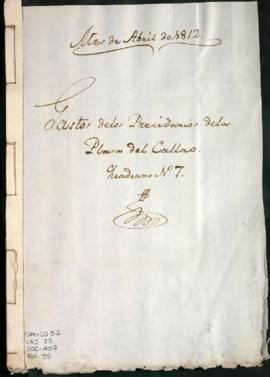 Mes de Abril de 1812.
Gastos delos Precidarios dela
Plaza del Callao.
Quaderno Nº 7.
GM-CO 82
CAJ 33
DOC-457
Fol. 35